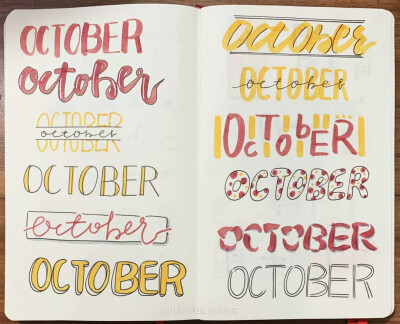 OCTOBER
october
OCTOBER
october
OCTOBER
october
OCTOBER
october
OCTOBER
october
OCTobER
OCTOBER
OCTOBER
OCTOBER